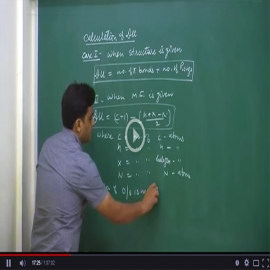 Calculation of DU
Case I - when structure is given
DU = no. of π bonds + no. of Rings
I. when M.F. is given
DU = (C+1) - (H+X-N / 2)
where C C - atoms
H = " " H - "
X = " " Halogen - "
N = " " N - atoms
17:25 / 1:07:02